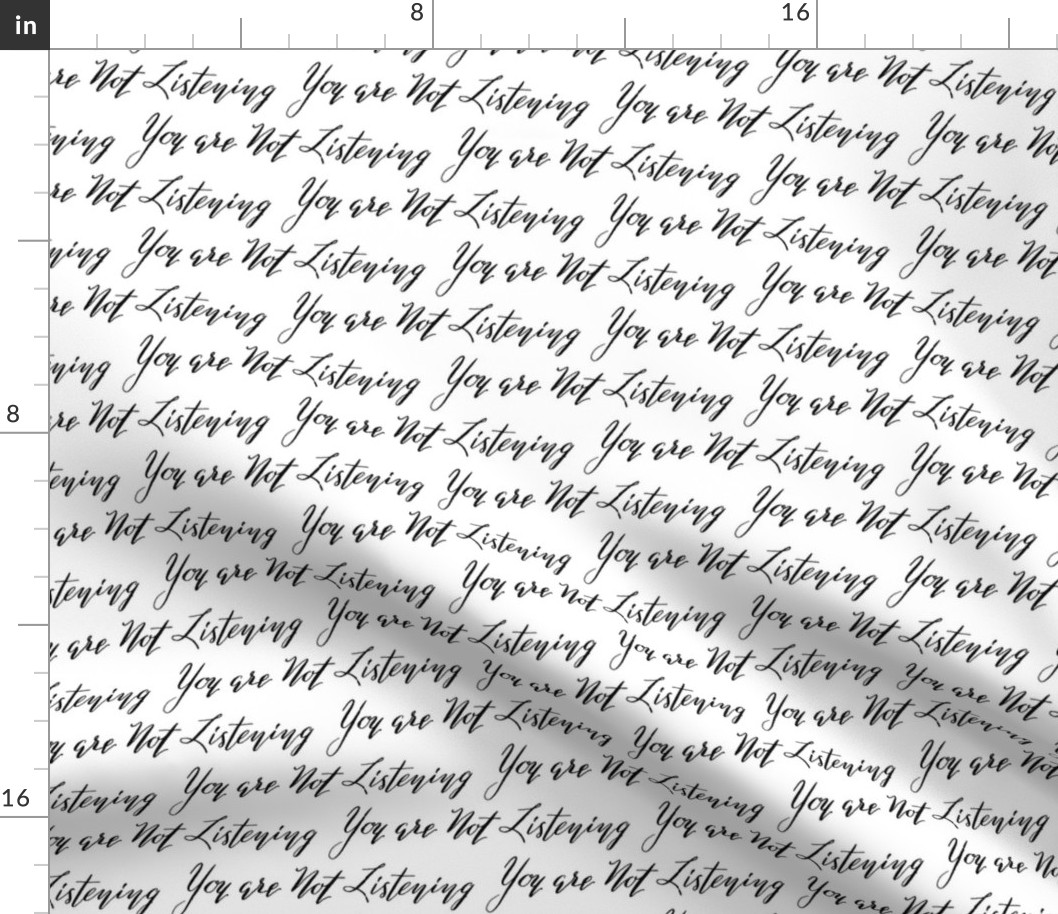 in 8 16
Listening You are Not Listening
re Not Listening You are Not Listening You are Not Listening You are No
ning You are Not Listening You are Not Listening You are Not Listening
re Not Listening You are Not Listening You are Not Listening You are Not
ning You are Not Listening You are Not Listening You are Not Listening
re Not Listening You are Not Listening You are Not Listening You are Not
ning You are Not Listening You are Not Listening You are Not Listening
8
re Not Listening You are Not Listening You are Not Listening You are Not
tening You are Not Listening You are Not Listening You are Not Listening
are Not Listening You are Not Listening You are Not Listening You are Not
stening You are Not Listening You are Not Listening You are Not Listening
are Not Listening You are Not Listening You are Not Listening You are Not
istening You are Not Listening You are Not Listening You are Not Listening
are Not Listening You are Not Listening You are Not Listening You are Not
16
Listening You are Not Listening You are Not Listening You are Not Listening
are Not Listening You are Not Listening You are Not Listening You are No
Listening You are Not Listening You are Not Listening You are Not